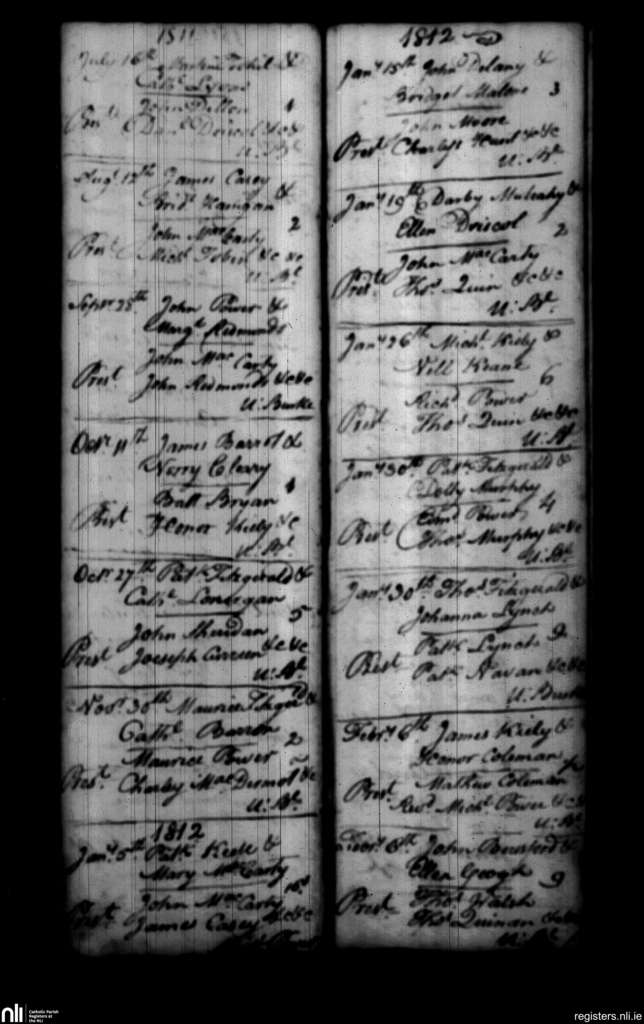 1811
July 16th
Cath: Lyons
John Dillon 1
Prest Danl Driscol &c&c
U: Bk
Augt 12th James Casey &
Bridt Hanigan
John MacCarty 2
Prest Michl Tobin &c &c
U: Bk
Septr 28th John Power &
Margt Redmonds
John MacCarty
Prest John Redmonds &c&c
U: Burke
Octr 11th James Barrot &
Norry Cleary
Ball Bryan 1
Prest Honor Kiely &c
U: Bk
Octr 27th Patk Fitzgerald &
Cathe Londegan
John Sheridan 5
Prest Joeseph &c&c
U: Bk
Novr 30th Maurice Fitzgerd &
Cathe Barron
Maurice Power 2
Prest Charley MacDermot &c
U: Bk
1812
Jany 5th Patk &
Mary McCarty
John McCarty
Prest James Casey &c&c
1812
Jany 15th John Delany &
Bridget Malone 3
John Moore
Prest Charlys &c&c
U: Bk
Jany 19th Darby Mulcahy &
Ellen Driscol 2
John MacCarty
Prest Thos Quin &c&c
U: Bk
Jany 26th Michl Kiely &
Nell Keane 6
Richd Power
Prest Thos Quin &c&c
U: Bk
Jany 30th Patk Fitzgerald &
Dolly Murphy
Edmd Power 4
Prest Thos Murphy &c&c
U: Bk
Jany 30th Thos Fitzgerald &
Johanna Lynch
Patk Lynch 2
Prest Patk Navan &c&c
U: Burke
Febry 6th James Kiely &
Honor Coleman
Mathew Coleman
Prest Revd Michl Power &c
U: Bk
Febry 8th John &
Ellen Geogh 9
Thos Walsh
Prest Thos Quinan &c&c
U: Bk
nli
Catholic Parish
Registers at
the NLI
registers.nli.ie